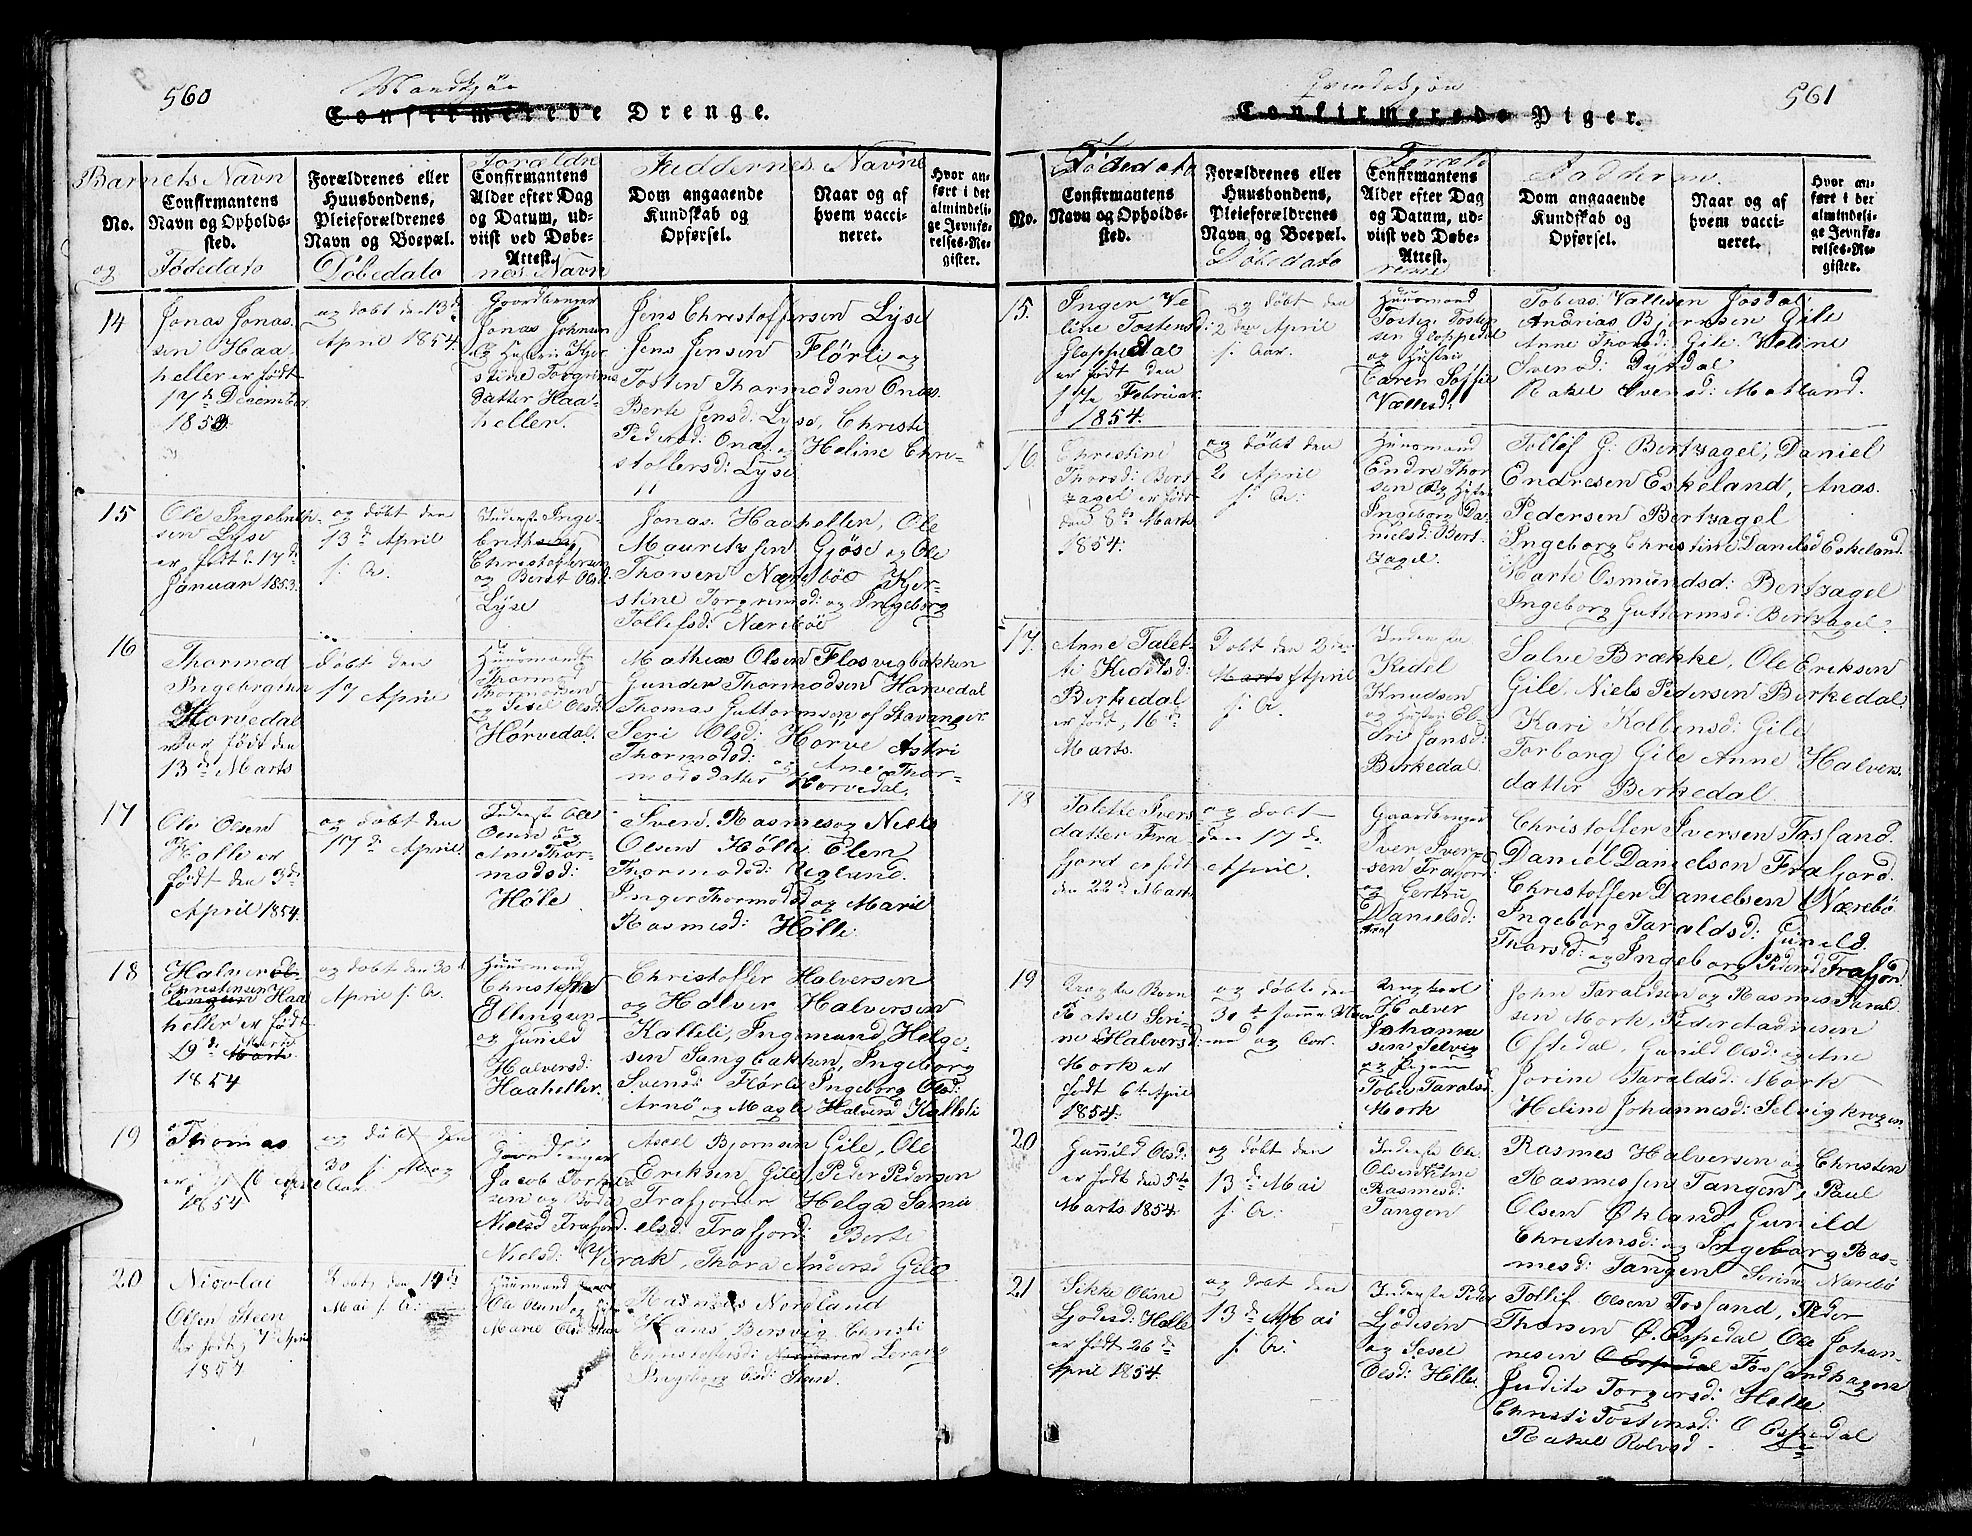 560
Mandkjøn
Confirmerede Drenge.
Barnets Navn
Forældre
Faddernes Navne
No.
Confirmantens Navn og Opholds-
sted.
og
Fødedato
Forældrenes eller
Huusbondens,
Pleieforældrenes
Navn og Boepæl.
Døbedato
Confirmantens
Alder efter Dag
og Datum, ud-
viist ved Døbe-
Attest.
nes Navn
Dom angaaende
Kundskab og
Opførsel.
Naar og af
hvem vacci-
neret.
Hvor an-
ført i det
almindeli-
ge Jevnfø-
relses-Re-
gister.
14
Jonas Jonas.
sen Haa-
heller er født
17de December
1853.
og døbt den 13de
April 1854
Gaardbruger
Jonas Johnsen
og Hustrue Kjer
stine Torgrims
datter Haa-
heller.
Jens Christoffersen Lyse
Jens Jensen Flørli og
Tosten Thormodsen Onas.
Berte Jensd: Lyse, Christi
Pedersd: Onas og Heline Chri-
stoffersd: Lyse
15
Ole Ingebreth-
sen Lyse
er født d. 17de
Januar 1853.
og døbt den
13de April
s: A:
Inderste Inge-
breth
Christoffersen
og Beret Olsd:
Lyse
Jonas Haaheller, Ole
Mauritssen Gjøse og Ole
Thorsen Nærebøe Kjer-
stine Torgrimsd: og Ingeborg
Tollefsd: Nærebøe
16
Thormod
Horvedal
er født den
13de Marts
døbt den
17 April
Huusmand
Thormod
Thormodsen
og Sisel Olsd:
Hørvedal.
Mathias Olsen Flosvigbakken
Gunder Thormodsen Horvedal
Thomas Guttormsen af Stavanger
Seri Olsd: Horve Astri
Thormodsd: og Ane Thor-
modsdatter Horvedal.
17
Ole Olsen
Hølle er
født den 3de
April 1854.
og døbt den
17de April.
Inderste Ole
Olsen og
Ane Thor-
modsd:
Høle
Svend Rasmes og Niels
Olsen Hølle Elen
Thormodsd: Uglund.
Inger Thormodsd og Marie
Rasmesd: Hølle
18
Halver
Christensen
Haa
heller er født
19de
Marts
1854
og døbt den 30de
April s: A:
Huusmand
Christen
Ellingsen
og Gunild
Halversd:
Haaheller.
Christoffer Halversen
og Halver Halversen
Kalleli, Ingemund Helge-
sen Sangbakken, Ingeborg
Svensd: Flørli Ingeborg Olsd:
Arnø og Masli Halversd Kalleli
19
Thomas
1854
og døbt den
30 s:
Aar.
Gaardbruger
Jacob
sen og
Nielsd Frafjord
Axsel Bjørnsen Gile, Ole
Eriksen Gile, Peder Pedersen
Frafjord Helga Samu
elsd: Frafjord: Berte
Nielsd: Virak, Thora Andersd Gile.
20
Nicolai
Olsen Steen
er født 7de April
1854
Døbt den 14de
Mai s: A:
Huusmand
Ole Olsen og
Marie Olsd Steen
Rasmes Nordland
Hans Bersvig Christi
Christofersd: Lerang
Ingeborg Olsd: Steen.
561
Qvindekjøn
Confirmerede Piger.
Fødedato
Foræld
Fadderne.
No.
Confirmantens
Navn og Opholds-
sted.
Forældrenes eller
Huusbondens,
Pleieforældrenes
Navn og Boepæl.
Døbedato
Confirmantens
Alder efter Dag
og Datum, ud-
viist ved Døbe-
Attest.
rene
Dom angaaende
Kundskab og
Opførsel.
Naar og af
hvem vacci-
neret.
Hvor an-
ført i det
almindeli-
ge Jevnfø-
relses-Re-
gister.
15.
Inger Ve
line Tostensd:
Gloppedal
er født den
17de Februar
1854.
og døbt den
2den April
s: Aar.
Huusmand
Tosten Tosten
sen Gloppedal
og Hustrue
Caren Soffie
Vallesd:
Tobias Vallesen Josdal
Andrias Bjørnsen Gile
Anne Thorsd: Gile. Heline
Svensd: Dyrdal
Rakel Svensd: Matland.
16
Christine
Thorsd: Bert-
zagel er født
den 8de Marts
1854.
og døbt den
2 April
s: A:
Huusmand
Endre Thor
sen og Hustrue
Ingeborg Da-
nielsd: Bert-
zagel.
Tollef G: Bertzagel, Daniel
Endresen Eskeland, Anas.
Pedersen Bertzagel
Ingeborg Christine Danielsd Eskeland.
Marte Osmundsd: Bertzagel
Ingeborg Guttormsd: Bertzagel.
17.
Anne Talet-
ti Kidelsd:
Birkedal
er født, 16de
Marts.
Døbt den 2den
Marts April
s: A:
Inderste
Kidel
Knudsen
og Hustrue El-
Jansd:
Birkedal.
Salve Brække, Ole Eriksen
Gile, Niels Pedersen Birkedal
Kari Kolbensd: Gile
Torborg Gile Anne Halvers.
datter Birkedal.
18
Talette Ivers
datter Fra
fjord er født
den 22de Marts
og døbt
den 17de
April.
Gaardbruger
Iver Iver-
sen Frafjord
og Gertru
Danielsd:
Christoffer Iversen Fosland.
Daniel Danielsen Frafjord.
Christoffer Danielsen Nærebø
Ingeborg Taraldsd: Gunild
Thorsd: og Ingeborg Pedersd Frafjord
19
Uægte Barn
Rakel Seri-
ne Halversd:
Mork er
født 6te April
1854.
og døbt den
30te samme Maa
ned og Aar.
Ungkarl
Halver
Johanne
sen Selvig
og Pigen
Tobie Taralsd.
Mork
John Taraldsen og Rasmes Tarald
sen Mork, Peder Madsesen
Oftedal, Gunild Olsd: og Ane
Jorine Taraldsd: Mork
Heline Johannesd: Selvigkrogen.
20
Gunnild Olsd.
er født den 5te
Marts 1854.
og døbt den
13de Mai
s: A:
Inderste Ole
Olsen Ane
Rasmesd:
Tangen
Rasmes Halversen og Christen
Rasmessen Tangen, Paul
Olsen Økland Gunild
Christensd: og Ingeborg Ras-
mesd: Tangen Serine Nærebø
21
Sikke Oline
Ljodesd: Helle
er født 26de
April 1854.
og døbt den
13de Mai
s: A:
Inderste Peder
Ljødesen
og Sesel
Olsd: Helle
Tollif Olsen Fosland, Peder
Thorsen Ø. Espedal Ole Johan-
nesen Ø Espedal Foslandhagen
Judite Torgersd: Helle
Christi Tostensd: Ø Espedal
Rakel Rolvsd